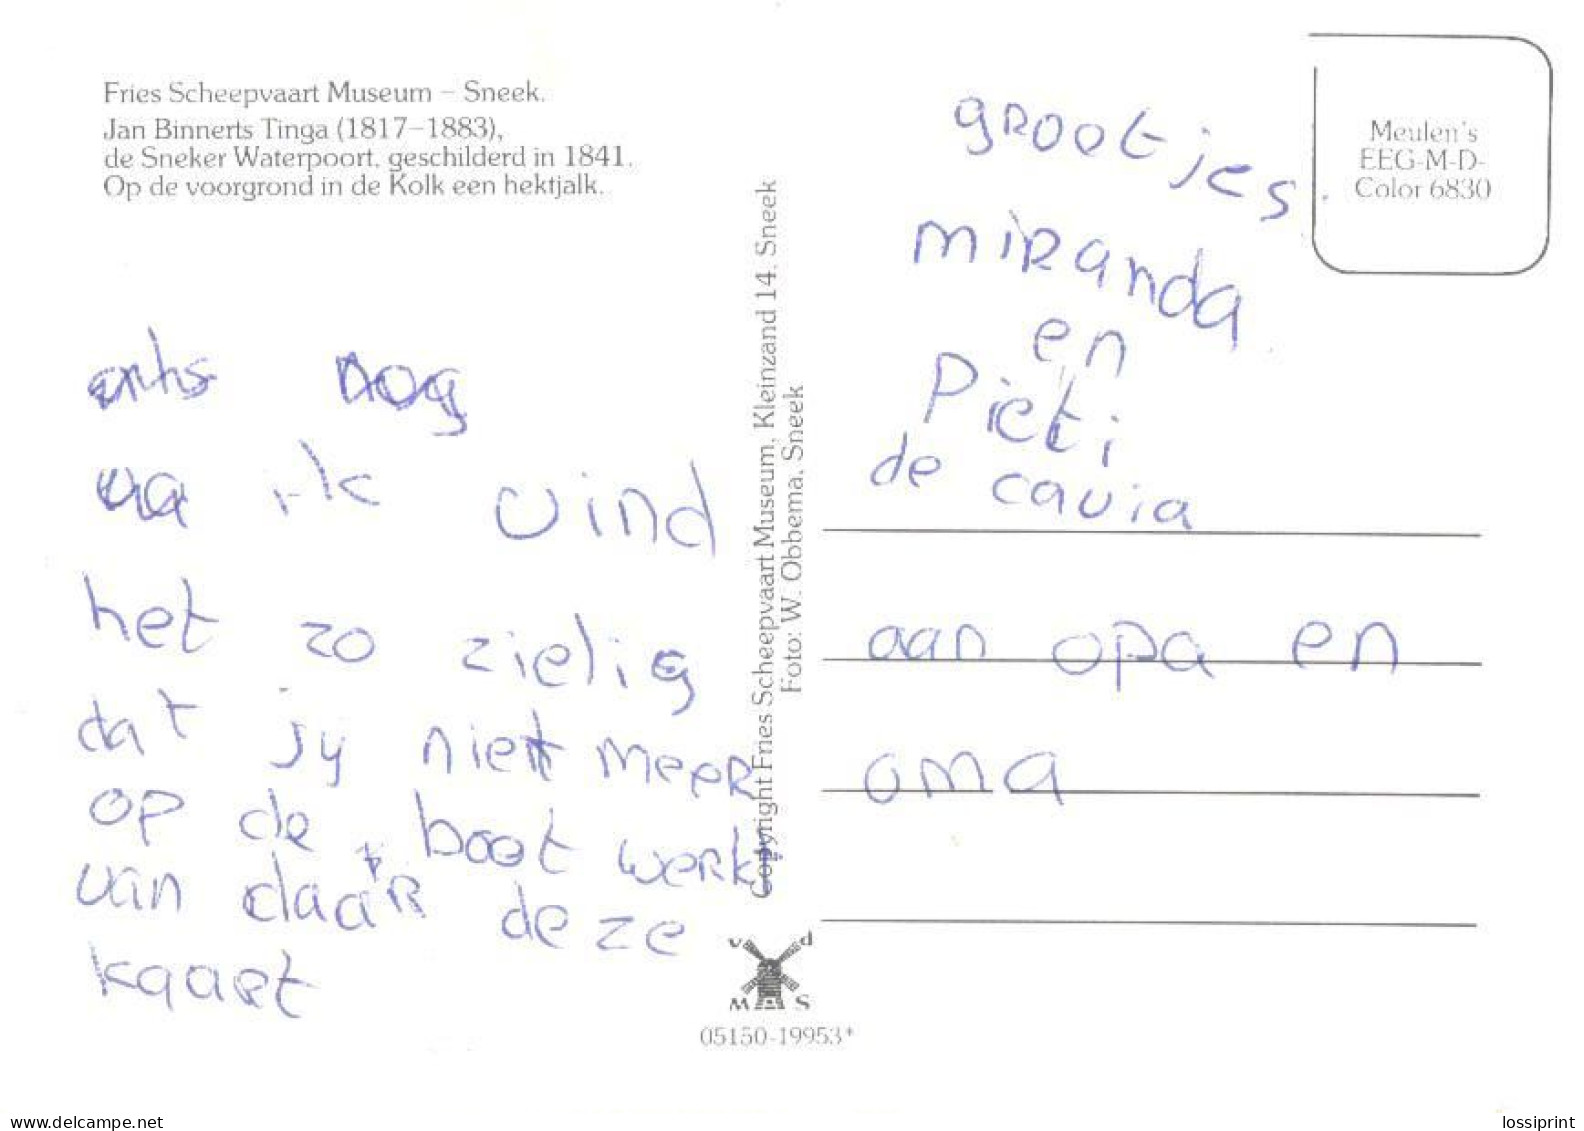 Fries Scheepvaart Museum – Sneek.
Jan Binnerts Tinga (1817–1883),
de Sneker Waterpoort, geschilderd in 1841.
Op de voorgrond in de Kolk een hektjalk.
nog
ik vind
het zo zielig
dat jy niet meer
op de boot werkt
van daar deze
kaart
Copyright Fries Scheepvaart Museum, Kleinzand 14, Sneek
Foto: W. Obbema, Sneek
v d
M S
05150-19953*
Meulen's
EEG-M-D-
Color 6830
grootjes.
miranda
en
Pieti
de cavia
aan opa en
oma
www.delcampe.net
lossiprint